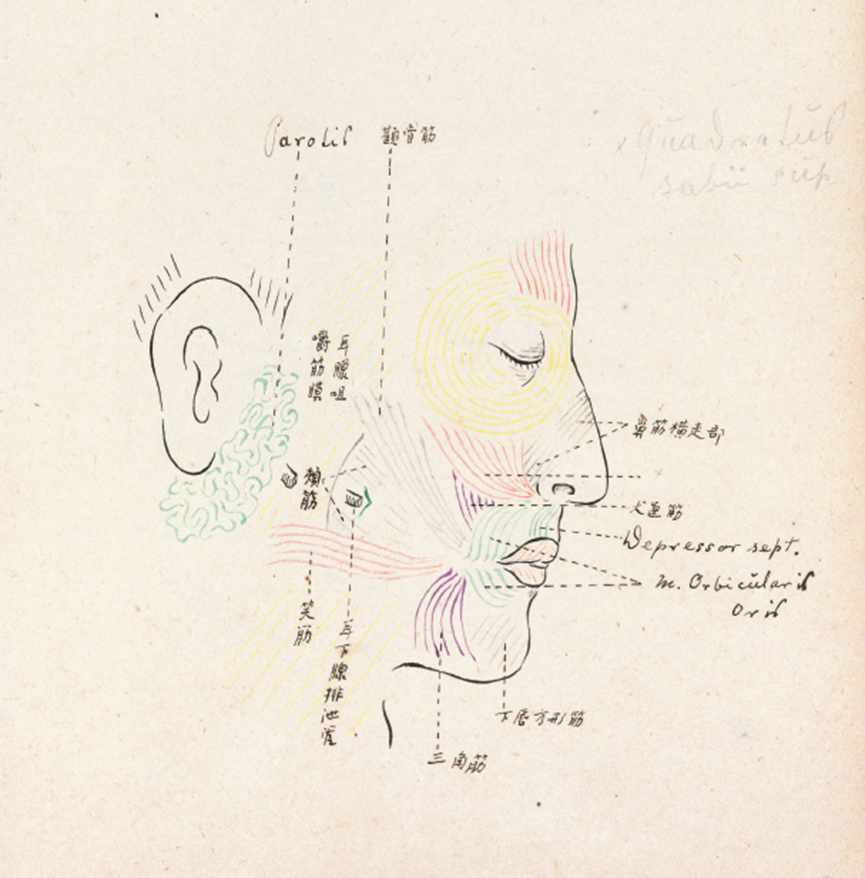 Parotis
顴骨筋
× Quadratus
labii sup
耳腺咀
嚼筋膜
鼻筋横走部
頬筋
犬歯筋
Depressor sept.
M. Orbicularis
Oris
笑筋
耳下腺排泄管
下唇方形筋
三角筋